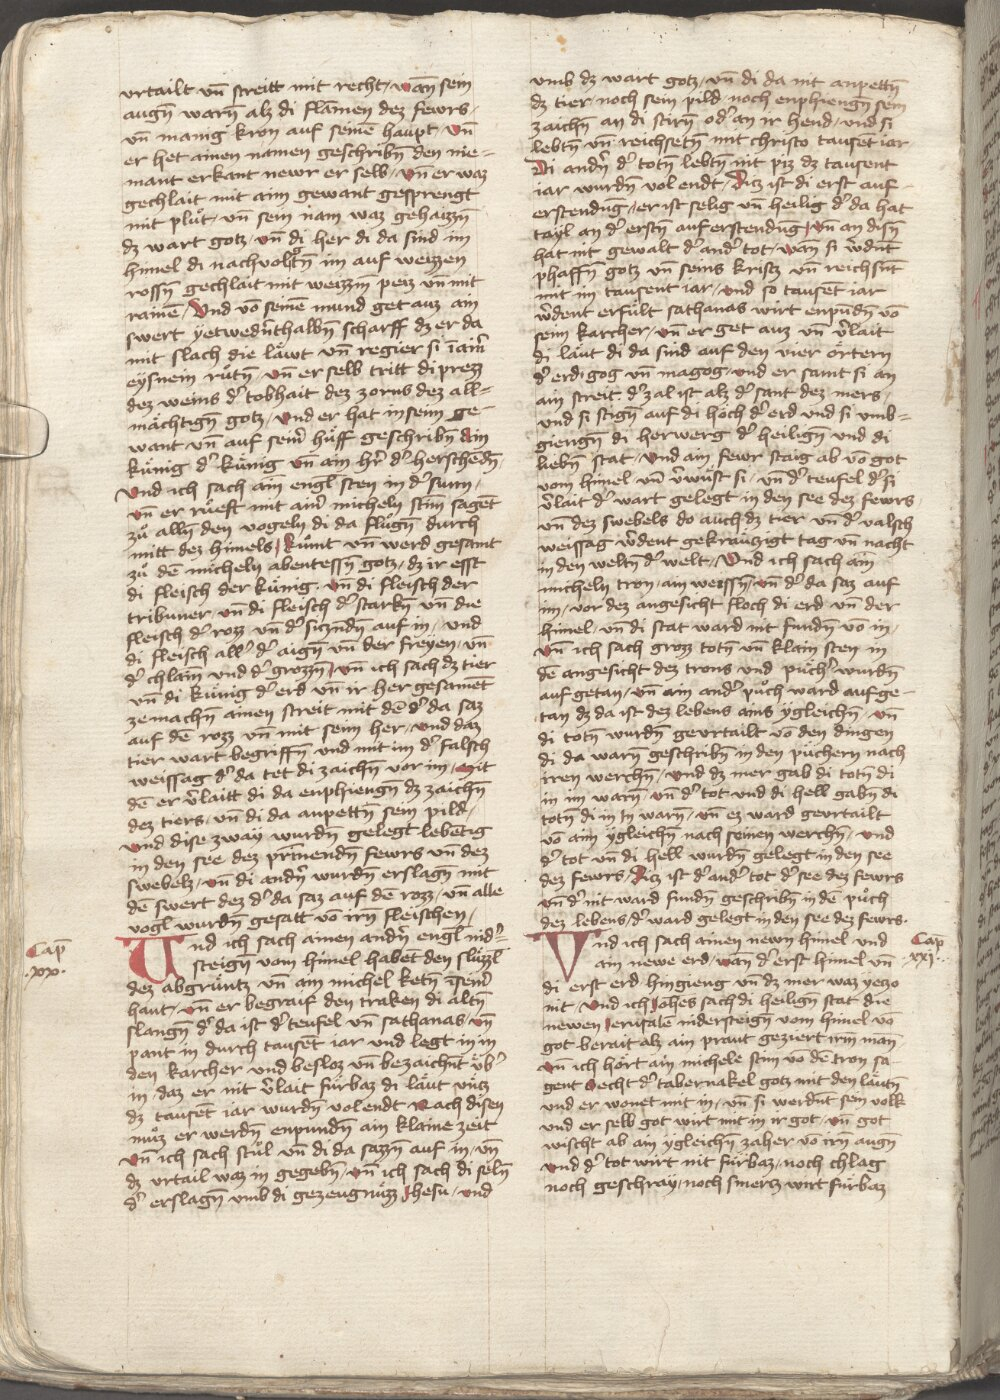 urtailt vn̄ streitt mit recht / wan̄ sein
augn̄ warn̄ alz di flāmen dez fewrs /
vn̄ manig kron auf seinē haupt / vn̄
er het ainen namen geschribn̄ den nie=
mant erkant newr er selb / vn̄ er waz
gechlait mit aim gewant gesprengt
mit plůt / vn̄ sein nam waz gehaizzn̄
dz wart gotz / vn̄ di her di da sind im
himel di nachvolgtn̄ im auf weizzen
rossn̄ gechlait mit weizzm peiz vn̄ mit
rainē / Und vō seinē mund get auz ain
swert yetwedn̄thalbn̄ scharff dz er da
mit slach die läwt vn̄ regier si i ainr̄
eysnein růtn̄ / vn̄ er selb tritt di prezz
dez weins dʼ tobhait dez zorns dez all=
mächtign̄ gotz / und er hat in seim ge=
want vn̄ auf seinr̄ hüff geschribn̄ Ain
künig dʼ künig vn̄ ain hr̄ dʼ herschēdn̄
Und ich sach ain engl sten in dʼ sunn /
vn̄ er rüeft mit ainr̄ micheln stim̄ sagēt
zů alln̄ den vogeln di da flugn̄ durch
mitt dez himels / kumt vn̄ werd gesamt
zů dē micheln abentessn̄ gotz / dz ir esst
di fleisch der künig / vn̄ di fleisch der
tribuner / vn̄ di fleisch dʼ starkn̄ vn̄ die
fleisch dʼ rozz / vn̄ dʼ siczndn̄ auf in / und
di fleisch allʼ dʼ aign̄ vn̄ der freyen / vn̄
dʼ chlain und dʼ grozzn̄ / vn̄ ich sach dz tier
vn̄ di künig dʼ erd vn̄ ir her gesamēt
ze machn̄ ainen streit mit dē dʼ da saz
auf dē rozz vn̄ mit seim her / und daz
tier wart begriffn̄ und mit im dʼ falsch
weissag dʼ da tet di zaichn̄ vor im / mit
dē er v̄laitt di da enphiengn̄ dz zaichn̄
dez tiers / vn̄ di da anpettn̄ sein pild /
und dise zway wurdn̄ gelegt lebētig
in den see dez prinnendn̄ fewrs vn̄ dez
swebelz / vn̄ di andn̄ wurdn̄ erslagn̄ mit
dē swert dez dʼ da saz auf dē rozz / vn̄ alle
vogl̄ wurdn̄ gesatt vō irn̄ fleischen /
Cap̄ .xx.
Und ich sach ainen andn̄ engl nidʼ=
steign̄ vom himel habēt den slüzzl
dez abgrüntz vn̄ ain michel ketn̄ i seinr̄
hant / vn̄ er begraif den traken di altn̄
slangn̄ dʼ da ist dʼ teufel vn̄ sathanas / vn̄
pant in durch tausēt iar und legt in in
den karcher und besloz vn̄ bezaichnt vbʼ
in / daz er nit v̄lait fürbaz di läut vntz
dz tausēt iar wurdn̄ volendt / Nach disen
můz er werdn̄ enpundn̄ ain klaine zeit
vn̄ ich sach stůl vn̄ di da sazzn̄ auf in / vn̄
dz urtail waz in gegebn̄ / vn̄ ich sach di seln̄
dʼ erslagn̄ umb di gezeugnüzz Jhesu / und
umb dz wart gotz / vn̄ di da nit anpettn̄
dz tier / noch sein pild / noch enphiengn̄ sein
zaichn̄ an di stirn̄ odʼ an ir hend / und si
lebtn̄ vn̄ reichsetn̄ mit christo tausēt iar
Di andn̄ dʼ totn̄ lebtn̄ nit piz dz tausent
iar wurdn̄ vol endt / Diz ist di erst auf=
erstendūg / er ist selig vn̄ heilig dʼ da hat
tayl an dʼ erstn̄ auferstendūg / vn̄ an disn̄
hat nit gewalt dʼ andʼ tot / wan̄ si w̄dnt
phaffn̄ gotz vn̄ seins kristz vn̄ reichsnt
mit im tausent iar / und so tausēt iar
w̄dent erfült sathanas wirt enpundn̄ vō
seim karcher / vn̄ er get auz vn̄ v̄lait
di läut di da sind auf den vier örtern
dʼ erd / gog vn̄ magog / und er samt si an
ain streit dʼ zal ist alz dʼ sant dez mers /
und si stign̄ auf di höch dʼ erd und si umb=
giengn̄ di herwerg dʼ heilign̄ und di
liebn̄ stat / und ain fewr staig ab vō got
vom himel vn̄ v̄wüst si / vn̄ dʼ teufel dʼ si
v̄lait dʼ wart gelegt in den see dez fewrs /
vn̄ dez swebels do auch dz tier vn̄ dʼ valsch
weissag w̄dent gekräutzigt tag vn̄ nacht
in den weltn̄ dʼ welt / Und ich sach ain
micheln tron / ain weissn̄ / vn̄ dʼ da saz auf
im / vor dez angesicht floch di erd vn̄ der
himel / vn̄ di stat ward nit fundn̄ vō in /
vn̄ ich sach groz totn̄ vn̄ klain sten in
dē angesicht dez trons und pücher wurdn̄
aufgetan / vn̄ ain andʼ půch ward aufge=
tan dz da ist dez lebens ains ygleichn̄ / vn̄
di totn̄ wurdn̄ geurtailt vō den dingen
di da warn̄ geschribn̄ in den püchern nach
iren werchn̄ / und dz mer gab di totn̄ di
in im warn̄ / vn̄ dʼ tot und di hell gabn̄ di
totn̄ di in in warn̄ / vn̄ ez ward geurtailt
vō aim ygleichn̄ nach seinen werchn̄ / und
dʼ tot vn̄ di hell wurdn̄ gelegt in den see
dez fewrs / Diz ist dʼ andʼ tot dʼ see dez fewrs
vn̄ dʼ nit ward fundn̄ geschribn̄ in dē půch
dez lebens / dʼ ward gelegt in den see dez fewrs.
Cap̄ .xxi.
Und ich sach ainen newn himel und
ain newe erd / wan̄ dʼ erst himel vn̄
di erst erd hingieng vn̄ dz mer waz yeczo
nit / und ich Johēs sach di heilign̄ stat die
newen Jerusalē nidersteign̄ vom himel vō
got berait alz ain praut geziert irm man
vn̄ ich hört ain michele stim vō dē tron sa=
gent Secht dʼ tabernakel gotz mit den läutn̄
und er wonet mit in / vn̄ si werdnt sein volk
und er selb got wirt mit in ir got / vn̄ got
wischt ab ain ygleichn̄ zaher vō irn̄ augn̄
und dʼ tot wirt nit fürbaz / noch chlag
noch geschray / noch smertz wirt fürbaz